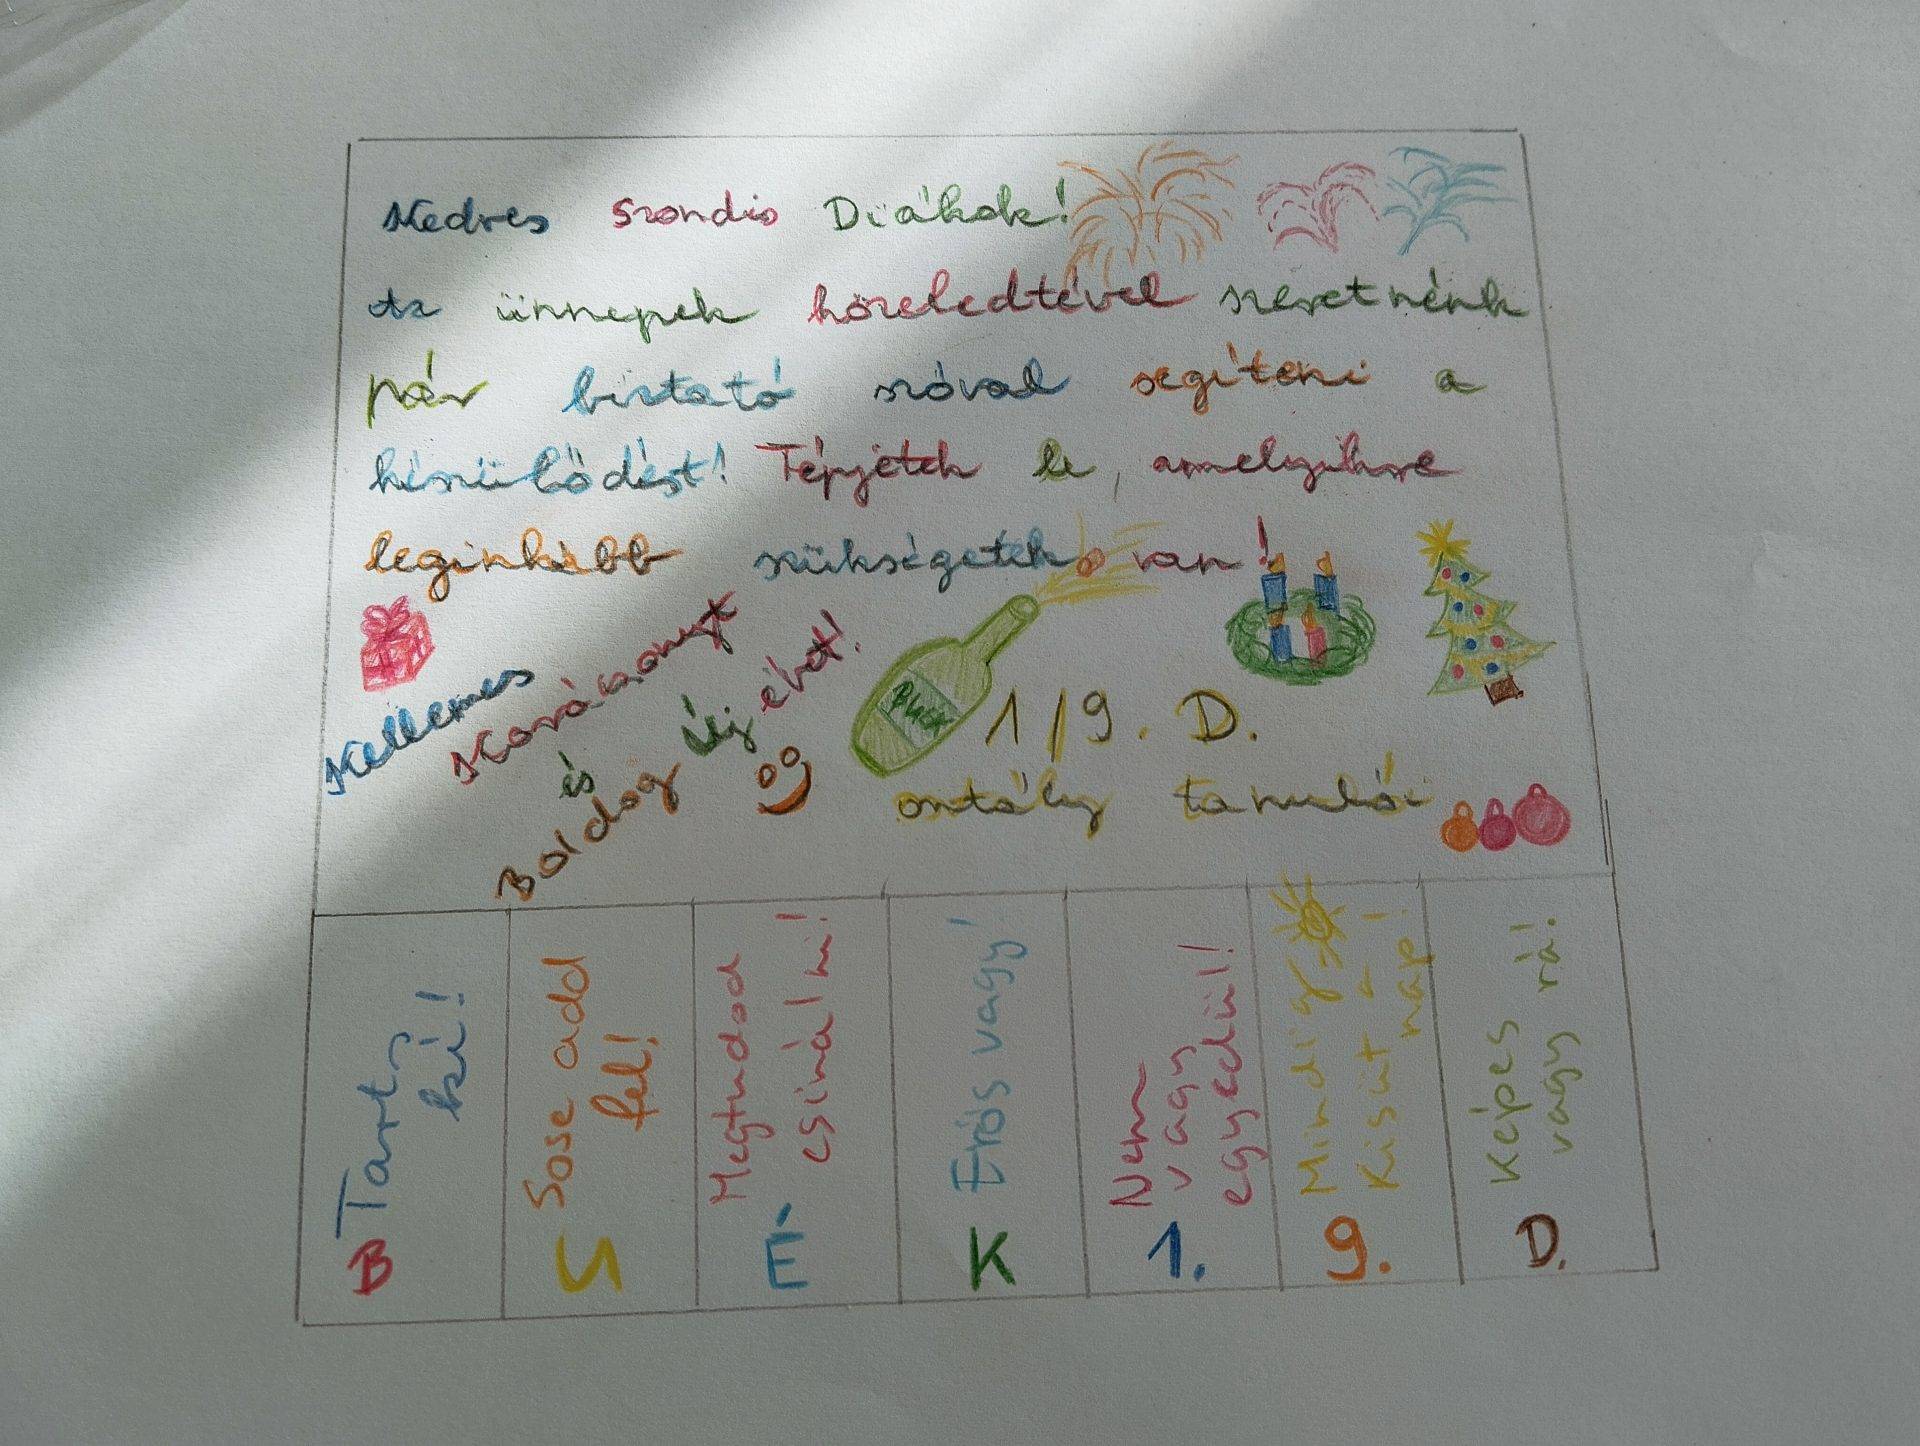 Kedves Szondis Diákok!
Az ünnepek közeledtével szeretnénk
pár biztató szóval segíteni a
készülődést! Tépjétek le, amelyikre
leginkább szükségetek van!
Kellemes
Karácsonyt
és
Boldog Új évet!
1/9. D.
osztály tanulói
Tarts
ki!
B
Sose add
fel!
U
Megtudod
csinálni!
É
Erős vagy!
K
Nem
vagy
egyedül!
1.
Mindig
kisüt a
nap!
9.
Képes
vagy rá!
D.